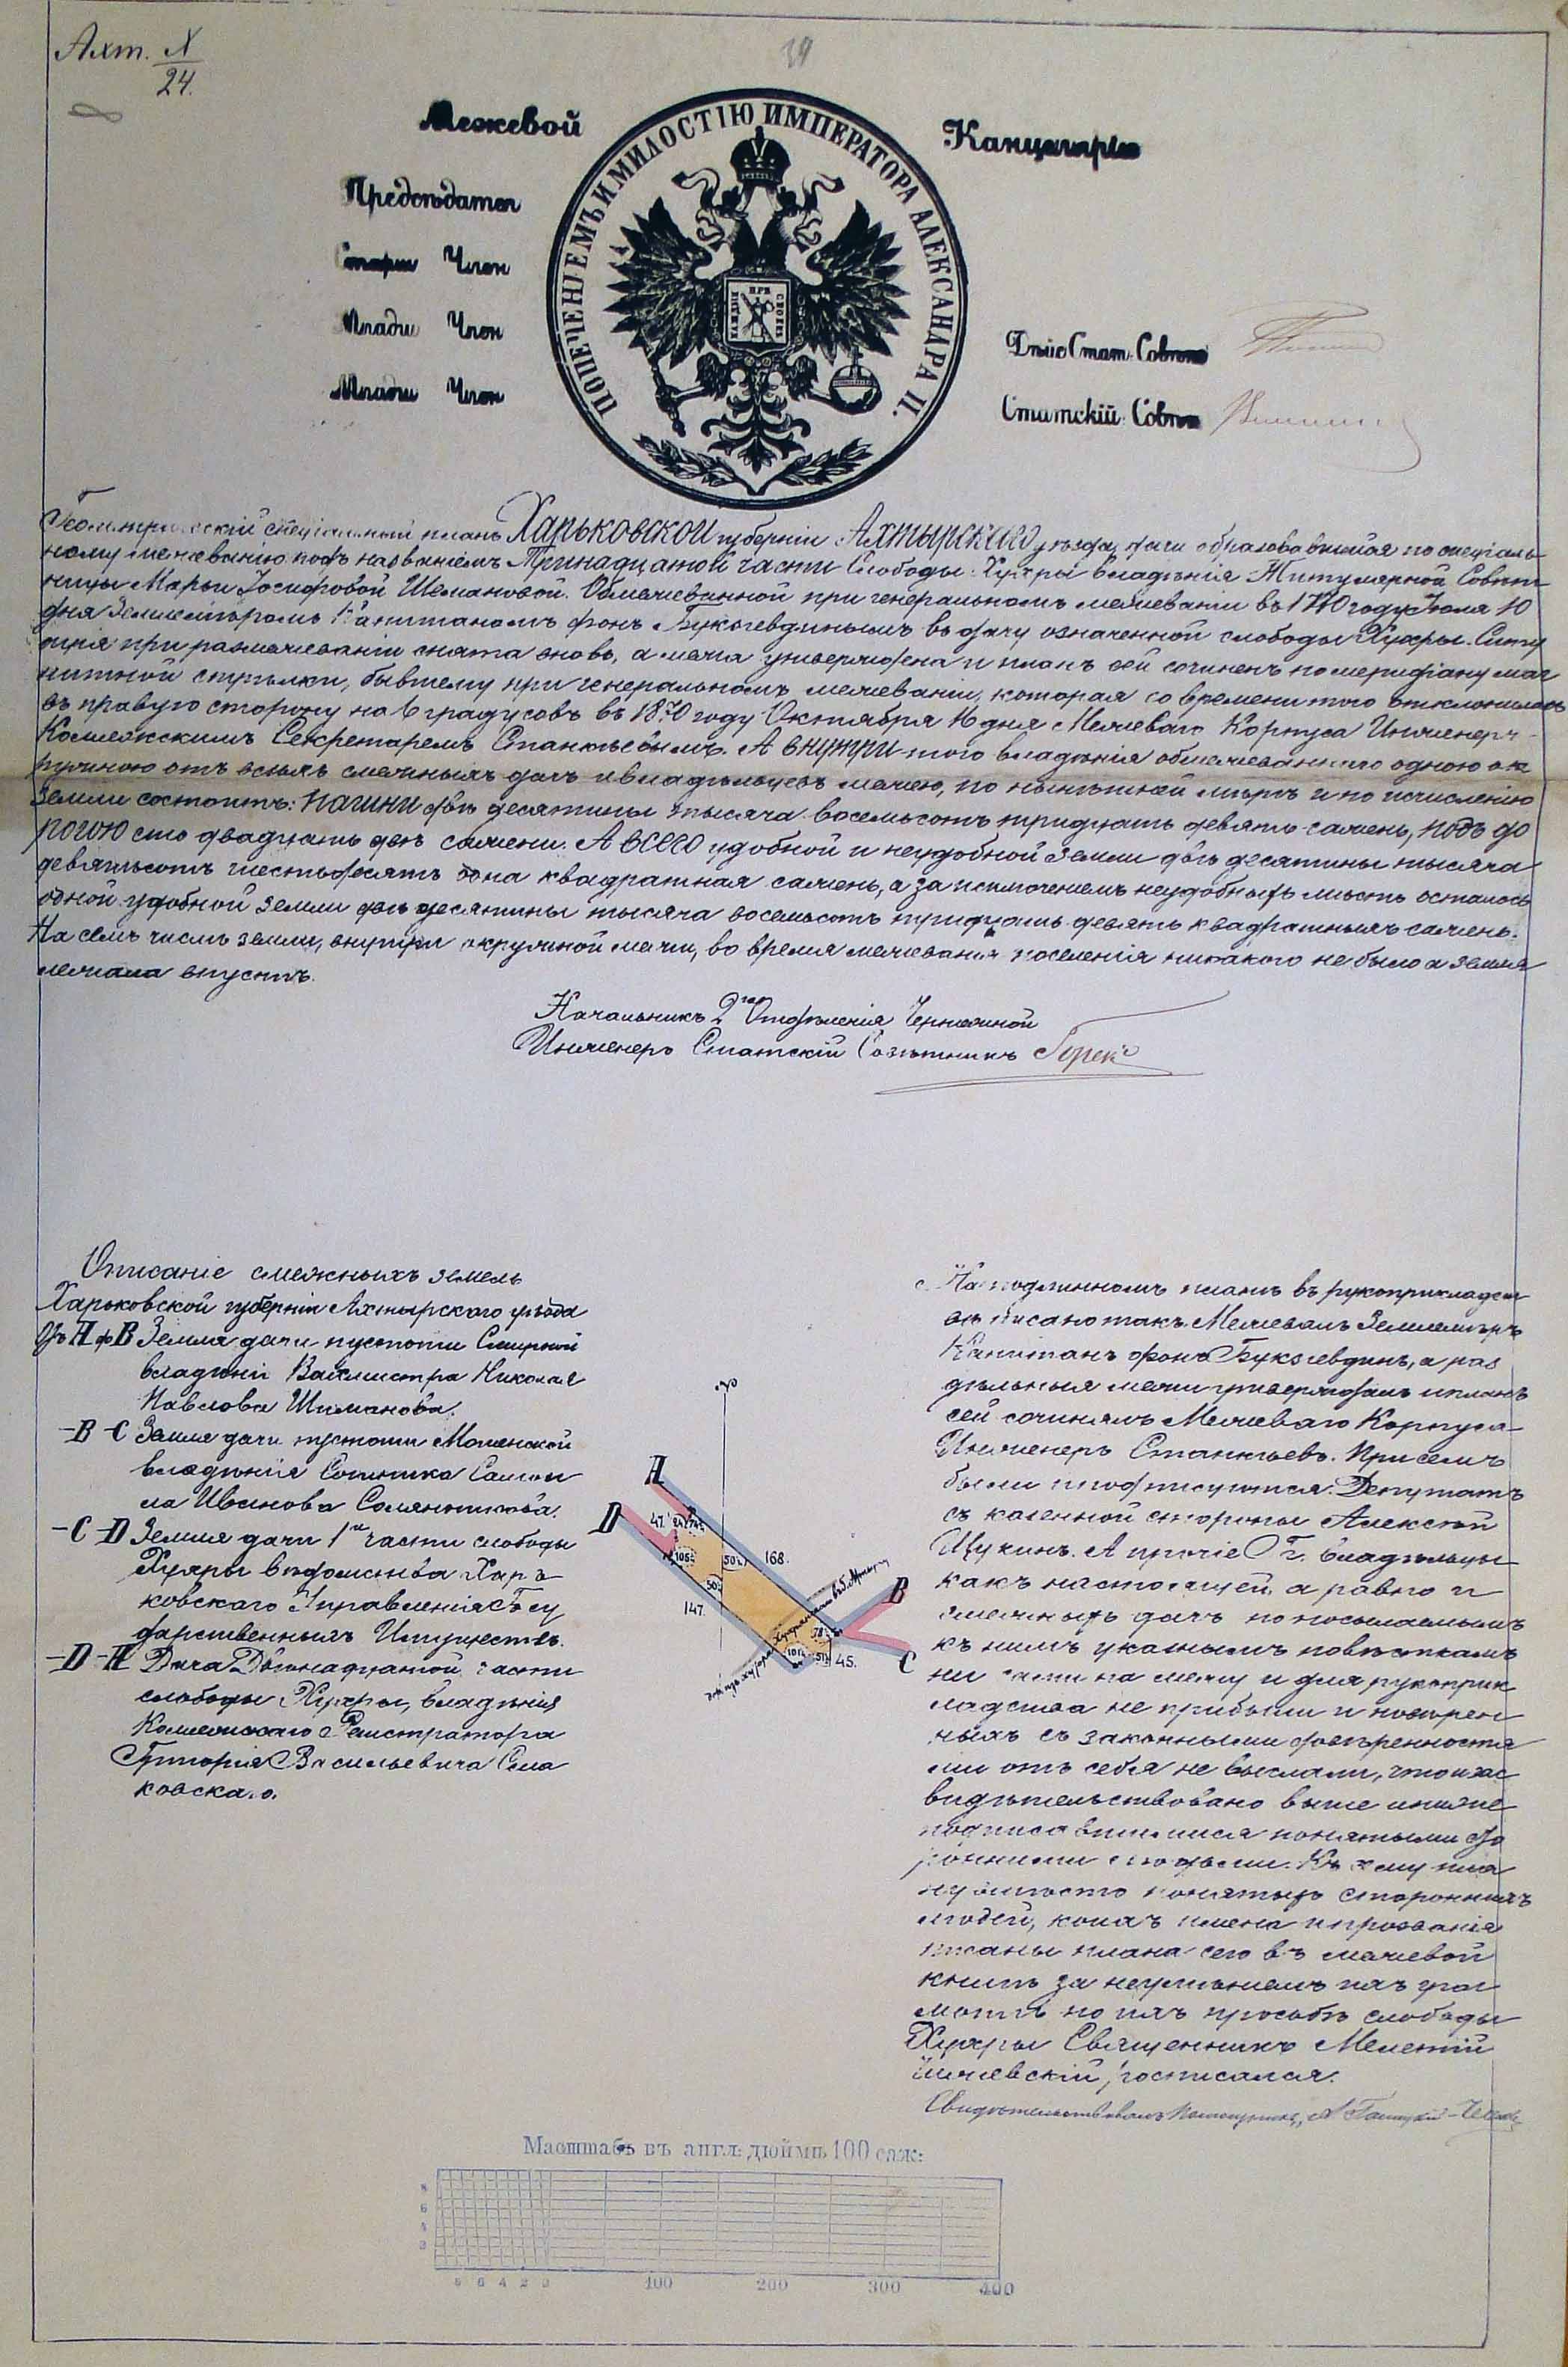 Ахт. N
24.
Межевой
Канцеляріи
ПОПЕЧЕНІЕМЪ И МИЛОСТІЮ ИМПЕРАТОРА АЛЕКСАНДРА II.
Предсѣдател
Старш Член
Младш Член
Младш Член
Дѣйс Стат: Совѣт
Статскій Совѣт
Геометрическій спеціальный планъ Харьковской губерніи Ахтырскаго уѣзда дачи образовавшейся по спеціаль
ному межеванію подъ названіемъ Тринадцатой части Слободы Хухры владѣнія Титулярной Совѣт
ницы Марьи Іосифовой Шемановой. Обмежеванной при генеральномъ межеваніи въ 1770 году Іюля 10
дня Землемѣромъ Капитаномъ фонъ Буксгевдиномъ въ дачу означенной слободы Хухры. Ситу
ація при размежеваніи снята вновь, а межа утверждена и планъ сей сочиненъ по меридіану маг
нитной стрѣлки, бывшему при генеральномъ межеваніи, которая со времени того отклонилась
въ правую сторону на 6 градусовъ въ 1870 году Октября 16 дня Межеваго Корпуса Инженеръ
Коллежскимъ Секретаремъ Станкѣевымъ. А внутри того владѣнія обмежеваннаго одною ок
ружною отъ всѣхъ смежныхъ дачъ и владѣльцевъ межею, по нынѣшней мѣрѣ и по исчисленію
Земли состоитъ: пашни двѣ десятины тысяча восемьсотъ тридцать девять сажень, подъ до
рогою сто двадцать двѣ сажени. А всего удобной и неудобной земли двѣ десятины тысяча
девятьсотъ шестьдесятъ одна квадратная сажень, а за исключеніемъ неудобныхъ мѣстъ осталось
одной удобной земли двѣ десятины тысяча восемьсотъ тридцать девять квадратныхъ сажень.
На семъ числѣ земли, внутри окружной межи, во время межеванія поселенія никакого не было а земля
лежала впустѣ.
Начальникъ 2го Отдѣленія Чертежной
Инженеръ Статскій Совѣтникъ
Описаніе смежныхъ земель
Харьковской губерніи Ахтырскаго уѣзда
Отъ А до В Земля дачи пустоши Смирной
владѣнія Вахмистра Николая
Павлова Шиманова.
-В -С Земля дачи пустоши
владѣнія Сотника Самои
ла Иванова
-С -D Земля дачи 1й части слободы
Хухры вѣдомства Харь
ковскаго Управленія Госу
дарственныхъ Имуществъ.
-D -А Дача Двѣнадцатой части
слободы Хухры, владѣнія
Коллежскаго Регистратора
Григорія Васильевича Сема
ковскаго.
А
D
В
С
47.
105
50
50
168.
147.
78
101
51
45.
На подлинномъ планѣ въ рукоприкладст
вѣ писано такъ. Межевалъ Землемѣръ
Капитанъ фонъ Буксгевдинъ, а раз
дѣльныя межи утверждалъ и планъ
сей сочинялъ Межеваго Корпуса
Инженеръ Станкѣевъ. При семъ
были и подписуются: Депутатъ
съ казенной стороны Алексѣй
Щукинъ. А прочіе Гг. владѣльцы
какъ настоящей, а равно и
смежныхъ дачъ по посылаемымъ
къ нимъ указнымъ повѣсткамъ
ни сами на межу и для руноприк
ладства не прибыли и повѣрен
ныхъ съ законными довѣренностя
ми отъ себя не выслали, что и зас
видѣтельствовано выше и ниже
подписавшимися понятыми сто
ронними людьми. Къ сему пла
ну вмѣсто понятыхъ стороннихъ
людей, коихъ имена и прозванія
писаны плана сего въ межевой
книгѣ за неумѣніемъ ихъ гра
мотѣ по ихъ просьбѣ слободы
Хухры Священникъ Мелетій
росписался.
Свидѣтельствовалъ
Масштабъ въ англ: дюймѣ 100 саж:
8
6
4
2
8 6 4 2 0 100 200 300 400